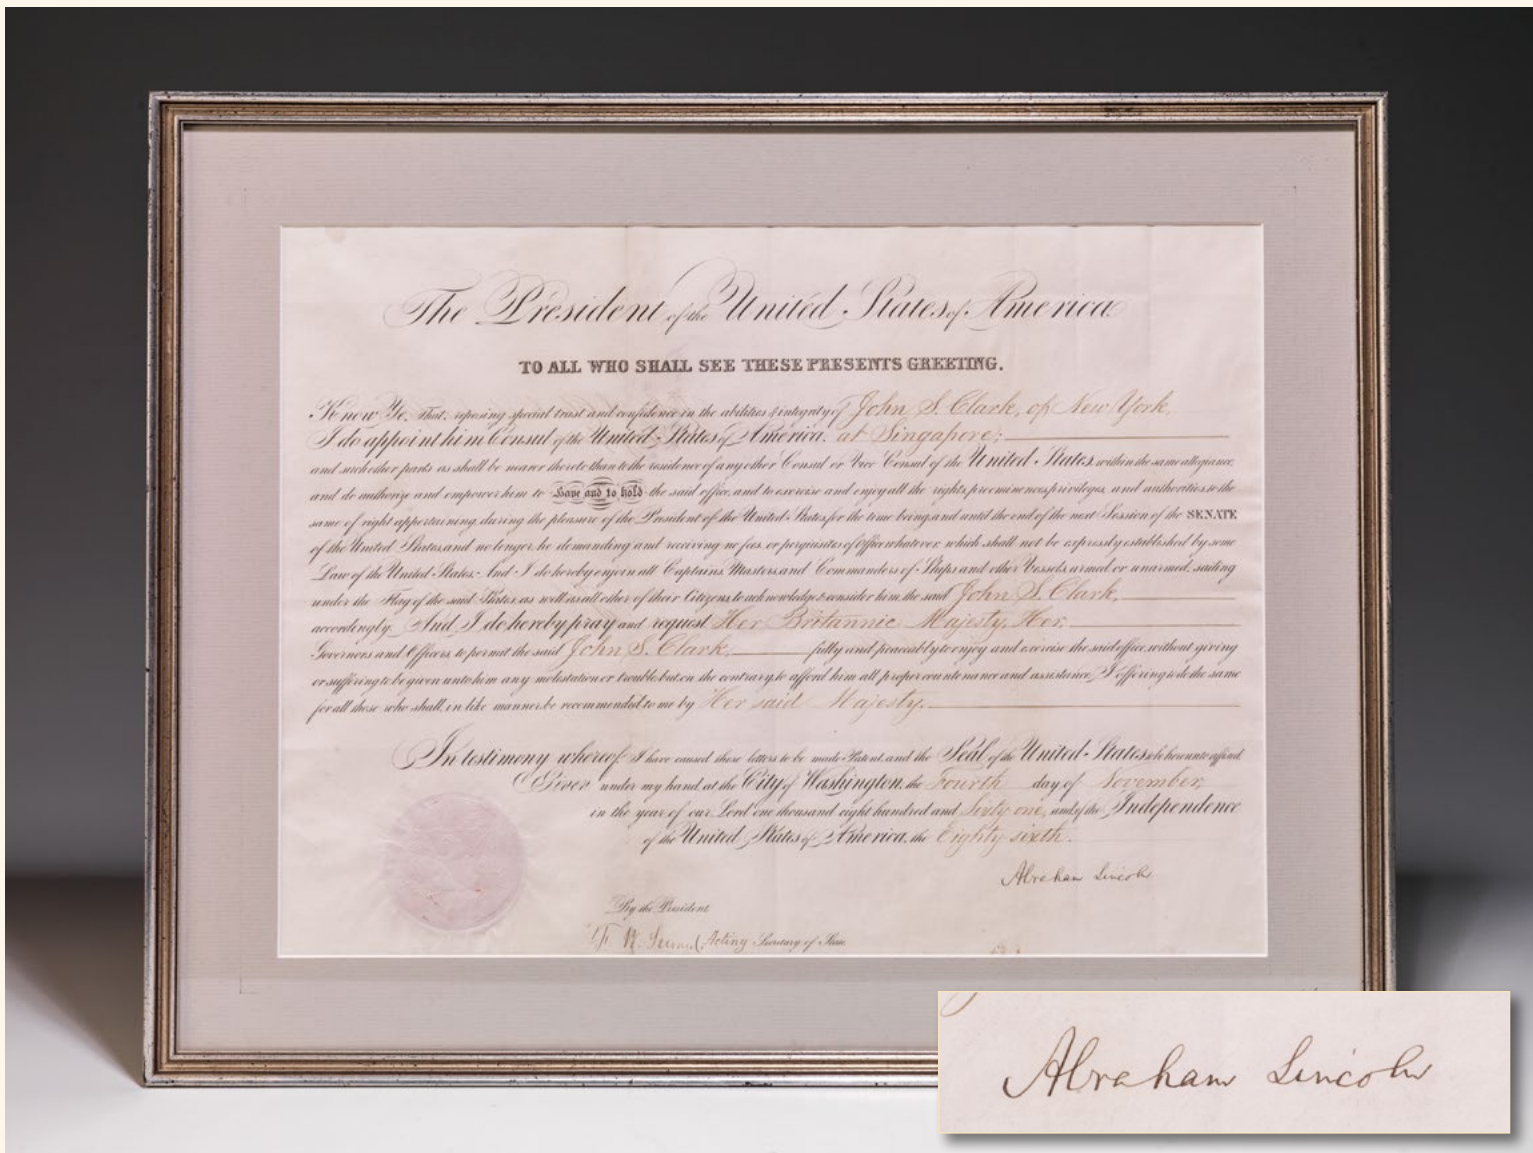 The President of the United States of America
TO ALL WHO SHALL SEE THESE PRESENTS GREETING.
Know Ye, That, reposing special trust and confidence in the abilities & integrity of John S. Clark, of New York,
I do appoint him Consul of the United States of America, at Singapore;
and such other parts as shall be nearer thereto than to the residence of any other Consul or Vice Consul of the United States, within the same allegiance,
and do authorize and empower him to Have and to hold the said office, and to exercise and enjoy all the rights, preeminences, privileges, and authorities, to the
same of right appertaining, during the pleasure of the President of the United States, for the time being, and until the end of the next Session of the SENATE
of the United States, and no longer, he demanding and receiving no fees or perquisites of Office whatever, which shall not be expressly established by some
Law of the United States. And I do hereby enjoin all Captains, Masters, and Commanders of Ships and other Vessels, armed or unarmed, sailing
under the Flag of the said States, as well as all other of their Citizens, to acknowledge & consider him, the said John S. Clark,
accordingly. And I do hereby pray and request Her Britannic Majesty, Her
Governors and Officers, to permit the said John S. Clark, fully and peaceably to enjoy and exercise the said office, without giving
or suffering to be given unto him any molestation or trouble, but on the contrary, to afford him all proper countenance and assistance; I offering to do the same
for all those who shall, in like manner, be recommended to me by Her said Majesty.
In testimony whereof, I have caused these letters to be made Patent, and the Seal of the United States to be hereunto affixed.
Given under my hand, at the City of Washington, the Fourth day of November,
in the year of our Lord one thousand eight hundred and Sixty one, and of the Independence
of the United States of America, the Eighty sixth.
Abraham Lincoln
By the President
F. W. Seward Acting Secretary of State
Abraham Lincoln